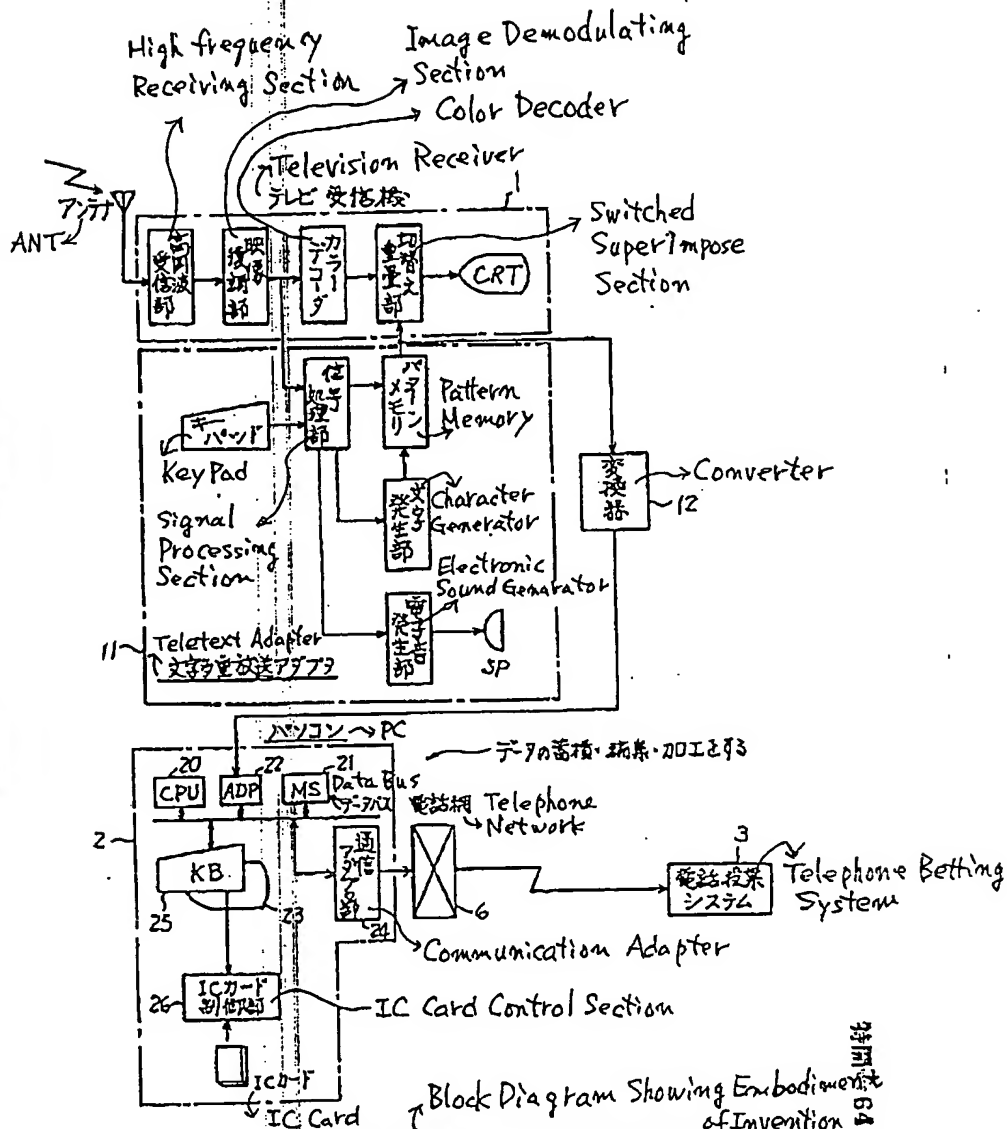 High frequency
Receiving Section
Image Demodulating
Section
Color Decoder
Television Receiver
テレビ受信機
1
アンテナ
ANT
高周波
受信部
映像
復調部
カラー
デコーダ
切替え
重畳部
CRT
Switched
SuperImpose
Section
キー
パッド
KeyPad
信号
処理部
パターン
メモリ
Pattern
Memory
Signal
Processing
Section
文字
発生部
Character
Generator
Electronic
Sound Genarator
電子音
発生部
SP
変換器
Converter
12
11
Teletext Adapter
文字多重放送アダプタ
パソコン → PC
データの蓄積・編集・加工をする
20
22
21
CPU
ADP
MS
Data Bus
データバス
電話網
Telephone
Network
2
KB
25
23
通信
アダプタ部
24
6
3
電話投票
システム
Telephone Betting
System
Communication Adapter
ICカード
制御部
26
IC Card Control Section
ICカード
IC Card
Block Diagram Showing Embodiment
of Invention
特開
64